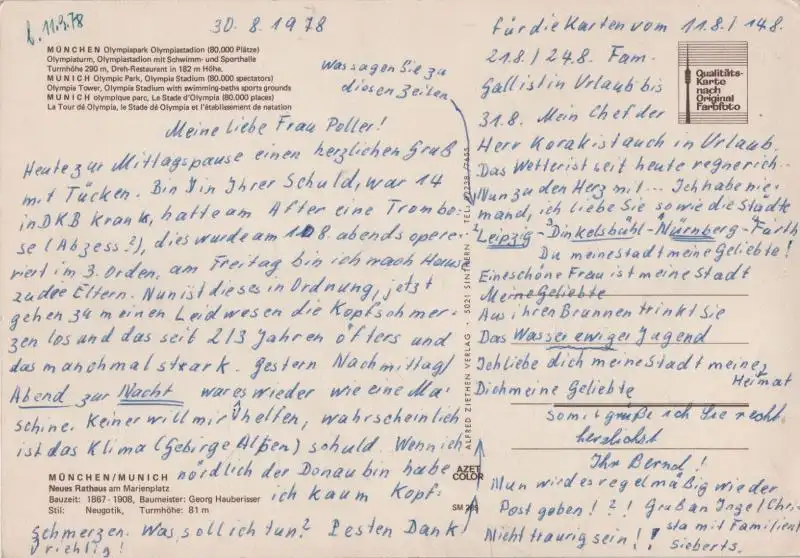 b. 11.9.78
30.8.1978
MÜNCHEN Olympiapark Olympiastadion (80.000 Plätze)
Olympiaturm, Olympiastadion mit Schwimm- und Sporthalle
Turmhöhe 290 m, Dreh-Restaurant in 182 m Höhe.
MUNICH Olympic Park, Olympia Stadium (80.000 spectators)
Olympia Tower, Olympia Stadium with swimming-baths sports grounds
MUNICH olympique parc, Le Stade d'Olympia (80.000 places)
La Tour dé Olympia, le Stade dé Olympia et l'établissement de natation
Was sagen Sie zu
diesen Zeilen
Meine liebe Frau Poller!
Heute zur Mittagspause einen herzlichen Gruß
mit Tücken. Bin in Ihrer Schuld, war 14
in DKB krank, hatte am After eine Trombo-
se (Abzess?), dies wurde am 1.8. abends opere-
riert im 3. Orden, am Freitag bin ich nach Haus
zu die Eltern. Nun ist dieses in Ordnung, jetzt
gehen zu meinen Leidwesen die Kopfschmer-
zen los und das seit 2 1/3 Jahren öfters und
das manchmal stark. Gestern Nachmittag/
Abend zur Nacht war es wieder wie eine Ma-
schine. Keiner will mir helfen, wahrscheinlich
ist das Klima (Gebirge Alpen) schuld. Wenn ich
nördlich der Donau bin habe
ich kaum Kopf-
schmerzen. Was soll ich tun? Besten Dank
richtig!
MÜNCHEN/MUNICH
Neues Rathaus am Marienplatz
Bauzeit: 1867-1908, Baumeister: Georg Hauberisser
Stil: Neugotik, Turmhöhe: 81 m
ALFRED ZIETHEN VERLAG · 5021 SINTHERN · TEL. 02238/7655
AZET
COLOR
SM
für die Karten vom 11.8./14.8.
21.8./24.8. Fam.
Gallist in Urlaub bis
31.8. Mein Chef der
Herr Korak ist auch in Urlaub.
Das Wetter ist seit heute regnerich.
Nun zu den Herz mit... Ich habe nie-
mand, ich liebe Sie sowie die Städte
Leipzig - Dinkelsbühl - Nürnberg - Fürth
Du meine Stadt meine Geliebte!
Eine schöne Frau ist meine Stadt
Meine Geliebte
Aus ihren Brunnen trinkt sie
Das Wasser ewiger Jugend
Ich liebe dich meine Stadt meine
Heimat
Dich meine Geliebte
Somit grüße ich Sie recht
herzlichst
Ihr Bernd!
Nun wird es regelmäßig wieder
Post geben!?! Gruß an Inge/Chri-
sta mit Familien
Nicht traurig sein!
Sieberts.
Qualitäts-
Karte
nach
Original
Farbfoto